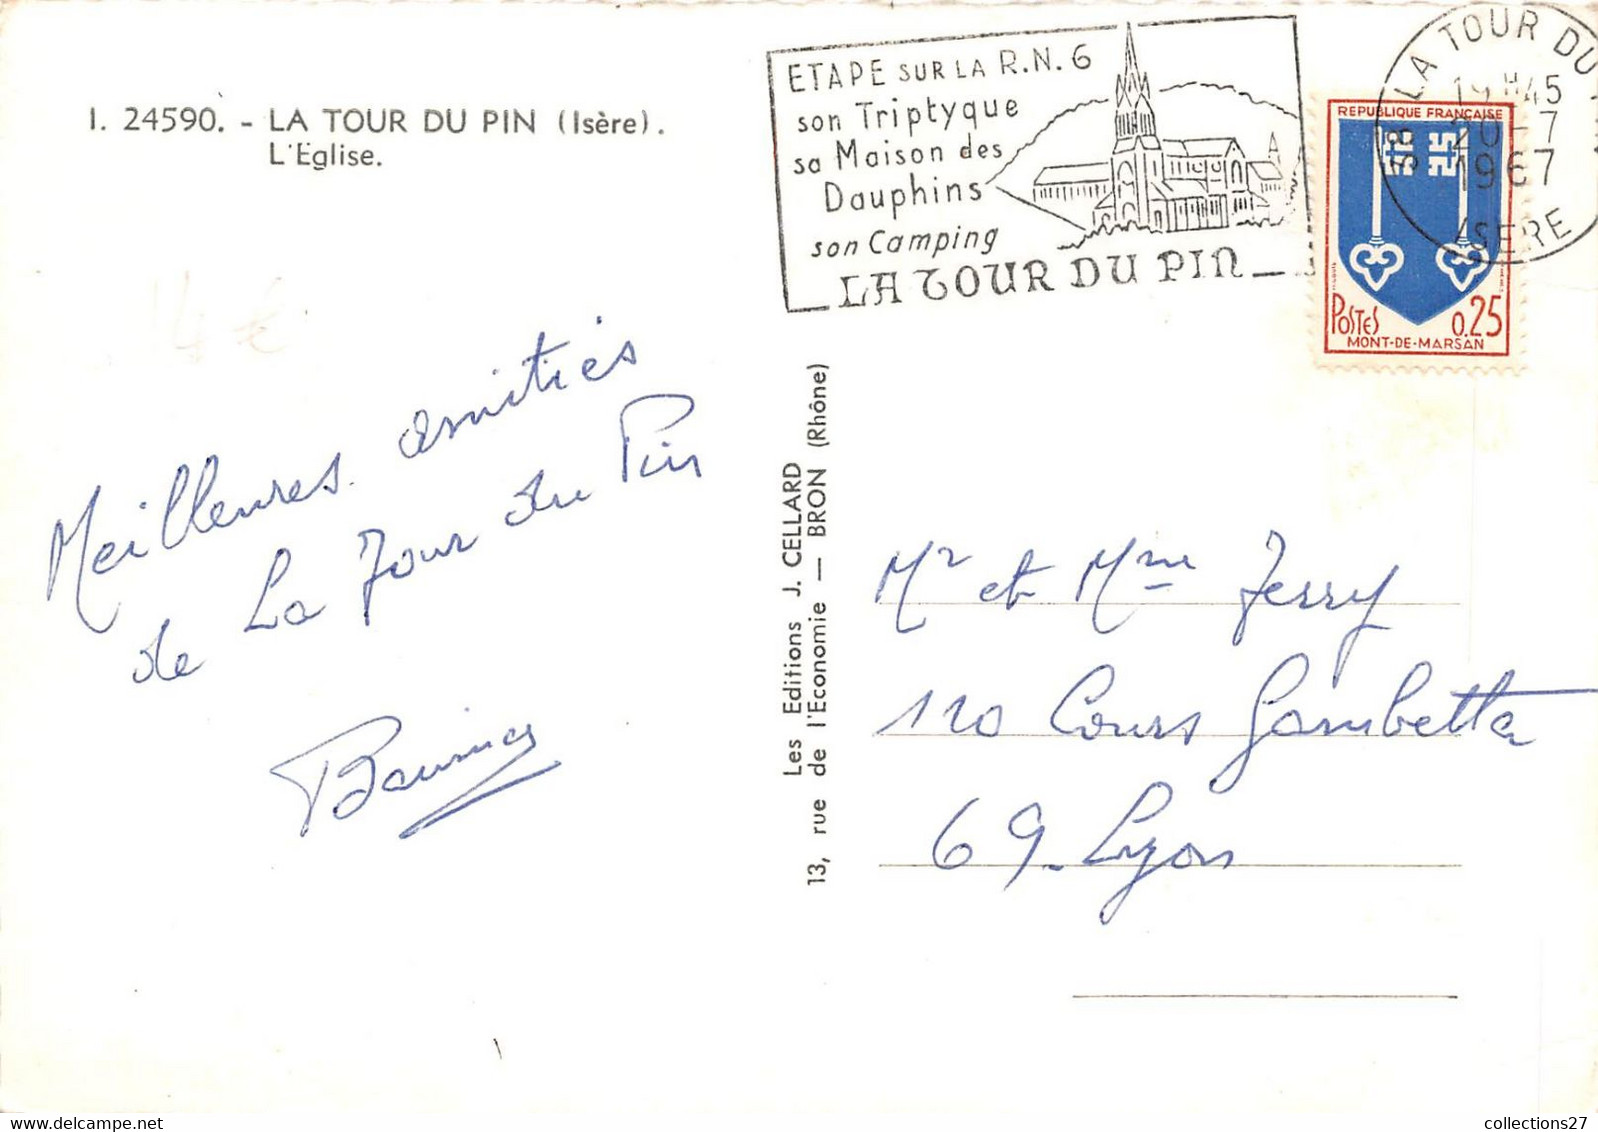 I. 24590. - LA TOUR DU PIN (Isère).
L'Eglise.
ETAPE SUR LA R.N. 6
son Triptyque
sa Maison des
Dauphins
son Camping
LA TOUR DU PIN
LA TOUR DU
19H45
20-7
1967
38 ISERE
REPUBLIQUE FRANÇAISE
POSTES 0.25
MONT-DE-MARSAN
4 €
Meilleures amitiés
de La Tour du Pin
Les Editions J. CELLARD
13, rue de l'Economie — BRON (Rhône)
Mr et Mme Ferry
120 Cours Gambetta
69 - Lyon
collections27